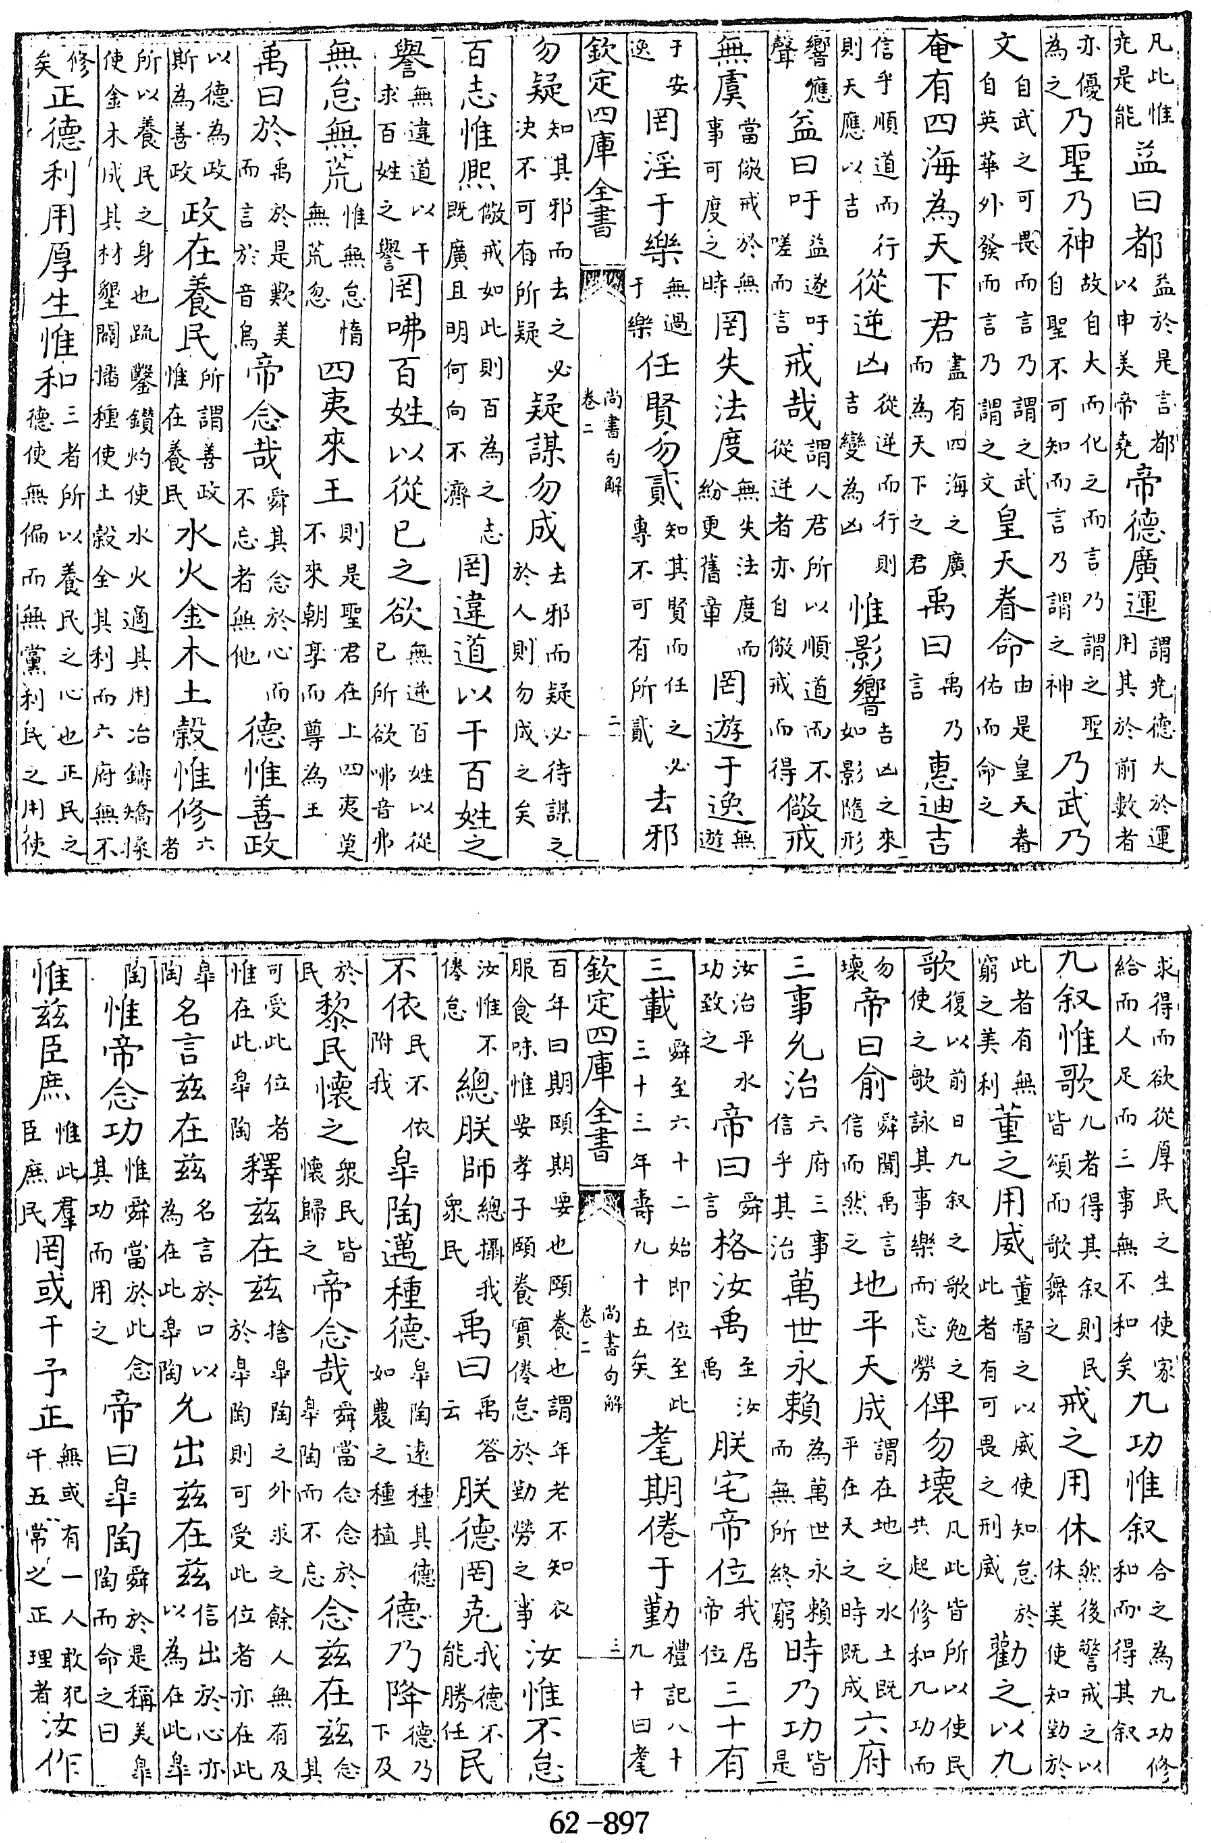 凡此惟堯是能益曰都益於是言都以申美帝堯帝德廣運謂堯德大於運用其於前數者
亦優為之乃聖乃神故自大而化之而言乃謂之聖自聖不可知而言乃謂之神乃武乃
文自武之可畏而言乃謂之武自英華外發而言乃謂之文皇天眷命由是皇天眷佑而命之
奄有四海為天下君盡有四海之廣而為天下之君禹曰禹乃言惠迪吉
信乎順道而行則天應以吉從逆凶從逆而行則吉變為凶惟影響吉凶之來如影隨形
響應聲益曰吁益遂吁嗟而言戒哉謂人君所以順道而不從逆者亦自儆戒而得儆戒
無虞當儆戒於無事可度之時罔失法度無失法度而紛更舊章罔遊于逸無遊
于安逸罔淫于樂無過于樂任賢勿貳知其賢而任之必專不可有所貳去邪
欽定四庫全書 尚書句解 卷二 二
勿疑知其邪而去之必决不可有所疑疑謀勿成去邪而疑必待謀之於人則勿成之矣
百志惟熈儆戒如此則百為之志既廣且明何向不濟罔違道以干百姓之
譽無違道以干求百姓之譽罔咈百姓以從己之欲無逆百姓以從己所欲咈音弗
無怠無荒惟無怠惰無荒忽四夷來王則是聖君在上四夷莫不來朝享而尊為王
禹曰於禹於是歎美而言於音烏帝念哉舜其念於心而不忘者無他德惟善政
以德為政斯為善政政在養民所謂善政惟在養民水火金木土穀惟修六者
所以養民之身也疏鑿鑽灼使水火適其用冶鑄矯揉使金木成其材墾闢播種使土穀全其利而六府無不
修矣正德利用厚生惟和三者所以養民之心也正民之德使無偏而無黨利民之用使
求得而欲從厚民之生使家給而人足而三事無不和矣九功惟叙合之為九功修和而得其叙
九叙惟歌九者得其叙則民皆頌而歌舞之戒之用休然後警戒之以休美使知勤於
此者有無窮之美利董之用威董督之以威使知怠於此者有可畏之刑威勸之以九
歌復以前日九叙之歌勉之使之歌詠其事樂而忘勞俾勿壊凡此皆所以使民共起修和九功而
勿壊帝曰俞舜聞禹言信而然之地平天成謂在地之水土既平在天之時既成六府
三事允治六府三事信乎其治萬世永賴為萬世永賴而無所終窮時乃功皆是
汝治平水功致之帝曰舜言格汝禹至汝禹朕宅帝位我居帝位三十有
三載舜至六十二始即位至此三十三年壽九十五矣耄期倦于勤禮記八十九十曰耄
欽定四庫全書 尚書句解 卷二 三
百年曰期頤期要也頤養也謂年老不知衣服食味惟要孝子頤養實倦怠於勤勞之事汝惟不怠
汝惟不倦怠總朕師總攝我衆民禹曰禹答云朕德罔克我德不能勝任民
不依民不依附我臯陶邁種德臯陶遠種其德如農之種植德乃降德乃下及
於民黎民懷之衆民皆懷歸之帝念哉舜當念念於臯陶而不忘念兹在兹念其
可受此位者惟在此臯陶釋兹在兹捨臯陶之外求之餘人無有及於臯陶則可受此位者亦在此
臯陶名言兹在兹名言於口以為在此臯陶允出兹在兹信出於心亦以為在此臯
陶惟帝念功惟舜當於此念其功而用之帝曰臯陶舜於是稱美臯陶而命之曰
惟兹臣庶惟此羣臣庶民罔或干予正無或有一人敢犯干五常之正理者汝作
62-897